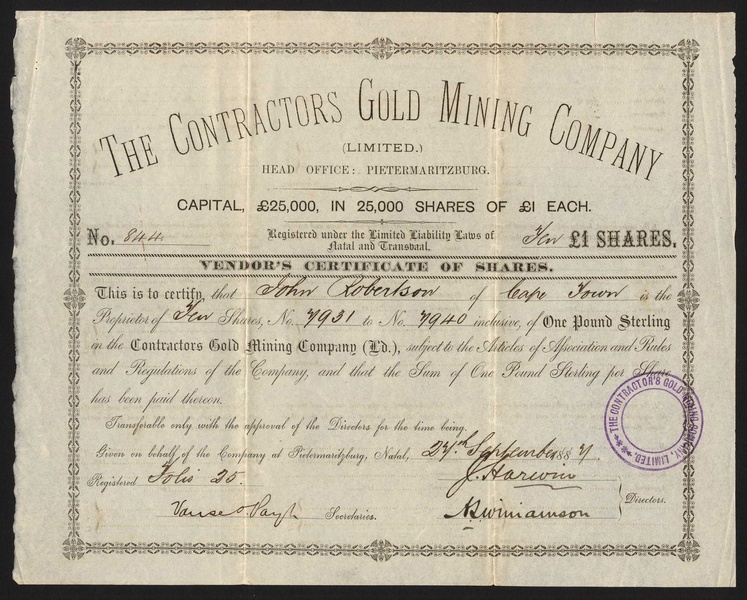 THE CONTRACTORS GOLD MINING COMPANY
(LIMITED.)
HEAD OFFICE: PIETERMARITZBURG.
CAPITAL, £25,000, IN 25,000 SHARES OF £1 EACH.
No. 844 Registered under the Limited Liability Laws of Natal and Transvaal. Ten £1 SHARES.
VENDOR'S CERTIFICATE OF SHARES.
This is to certify, that John Robertson of Cape Town is the
Proprietor of Ten Shares, No. 7931 to No. 7940 inclusive, of One Pound Sterling
in the Contractors Gold Mining Company (Ld.), subject to the Articles of Association and Rules
and Regulations of the Company, and that the Sum of One Pound Sterling per Share
has been paid thereon.
Transferable only with the approval of the Directors for the time being.
Given on behalf of the Company at Pietermaritzburg, Natal, 27th September 1887.
Registered Folio 25.
J. Harwin
Directors.
Secretaries.
Williamson
THE CONTRACTOR'S GOLD MINING COMPANY, LIMITED.